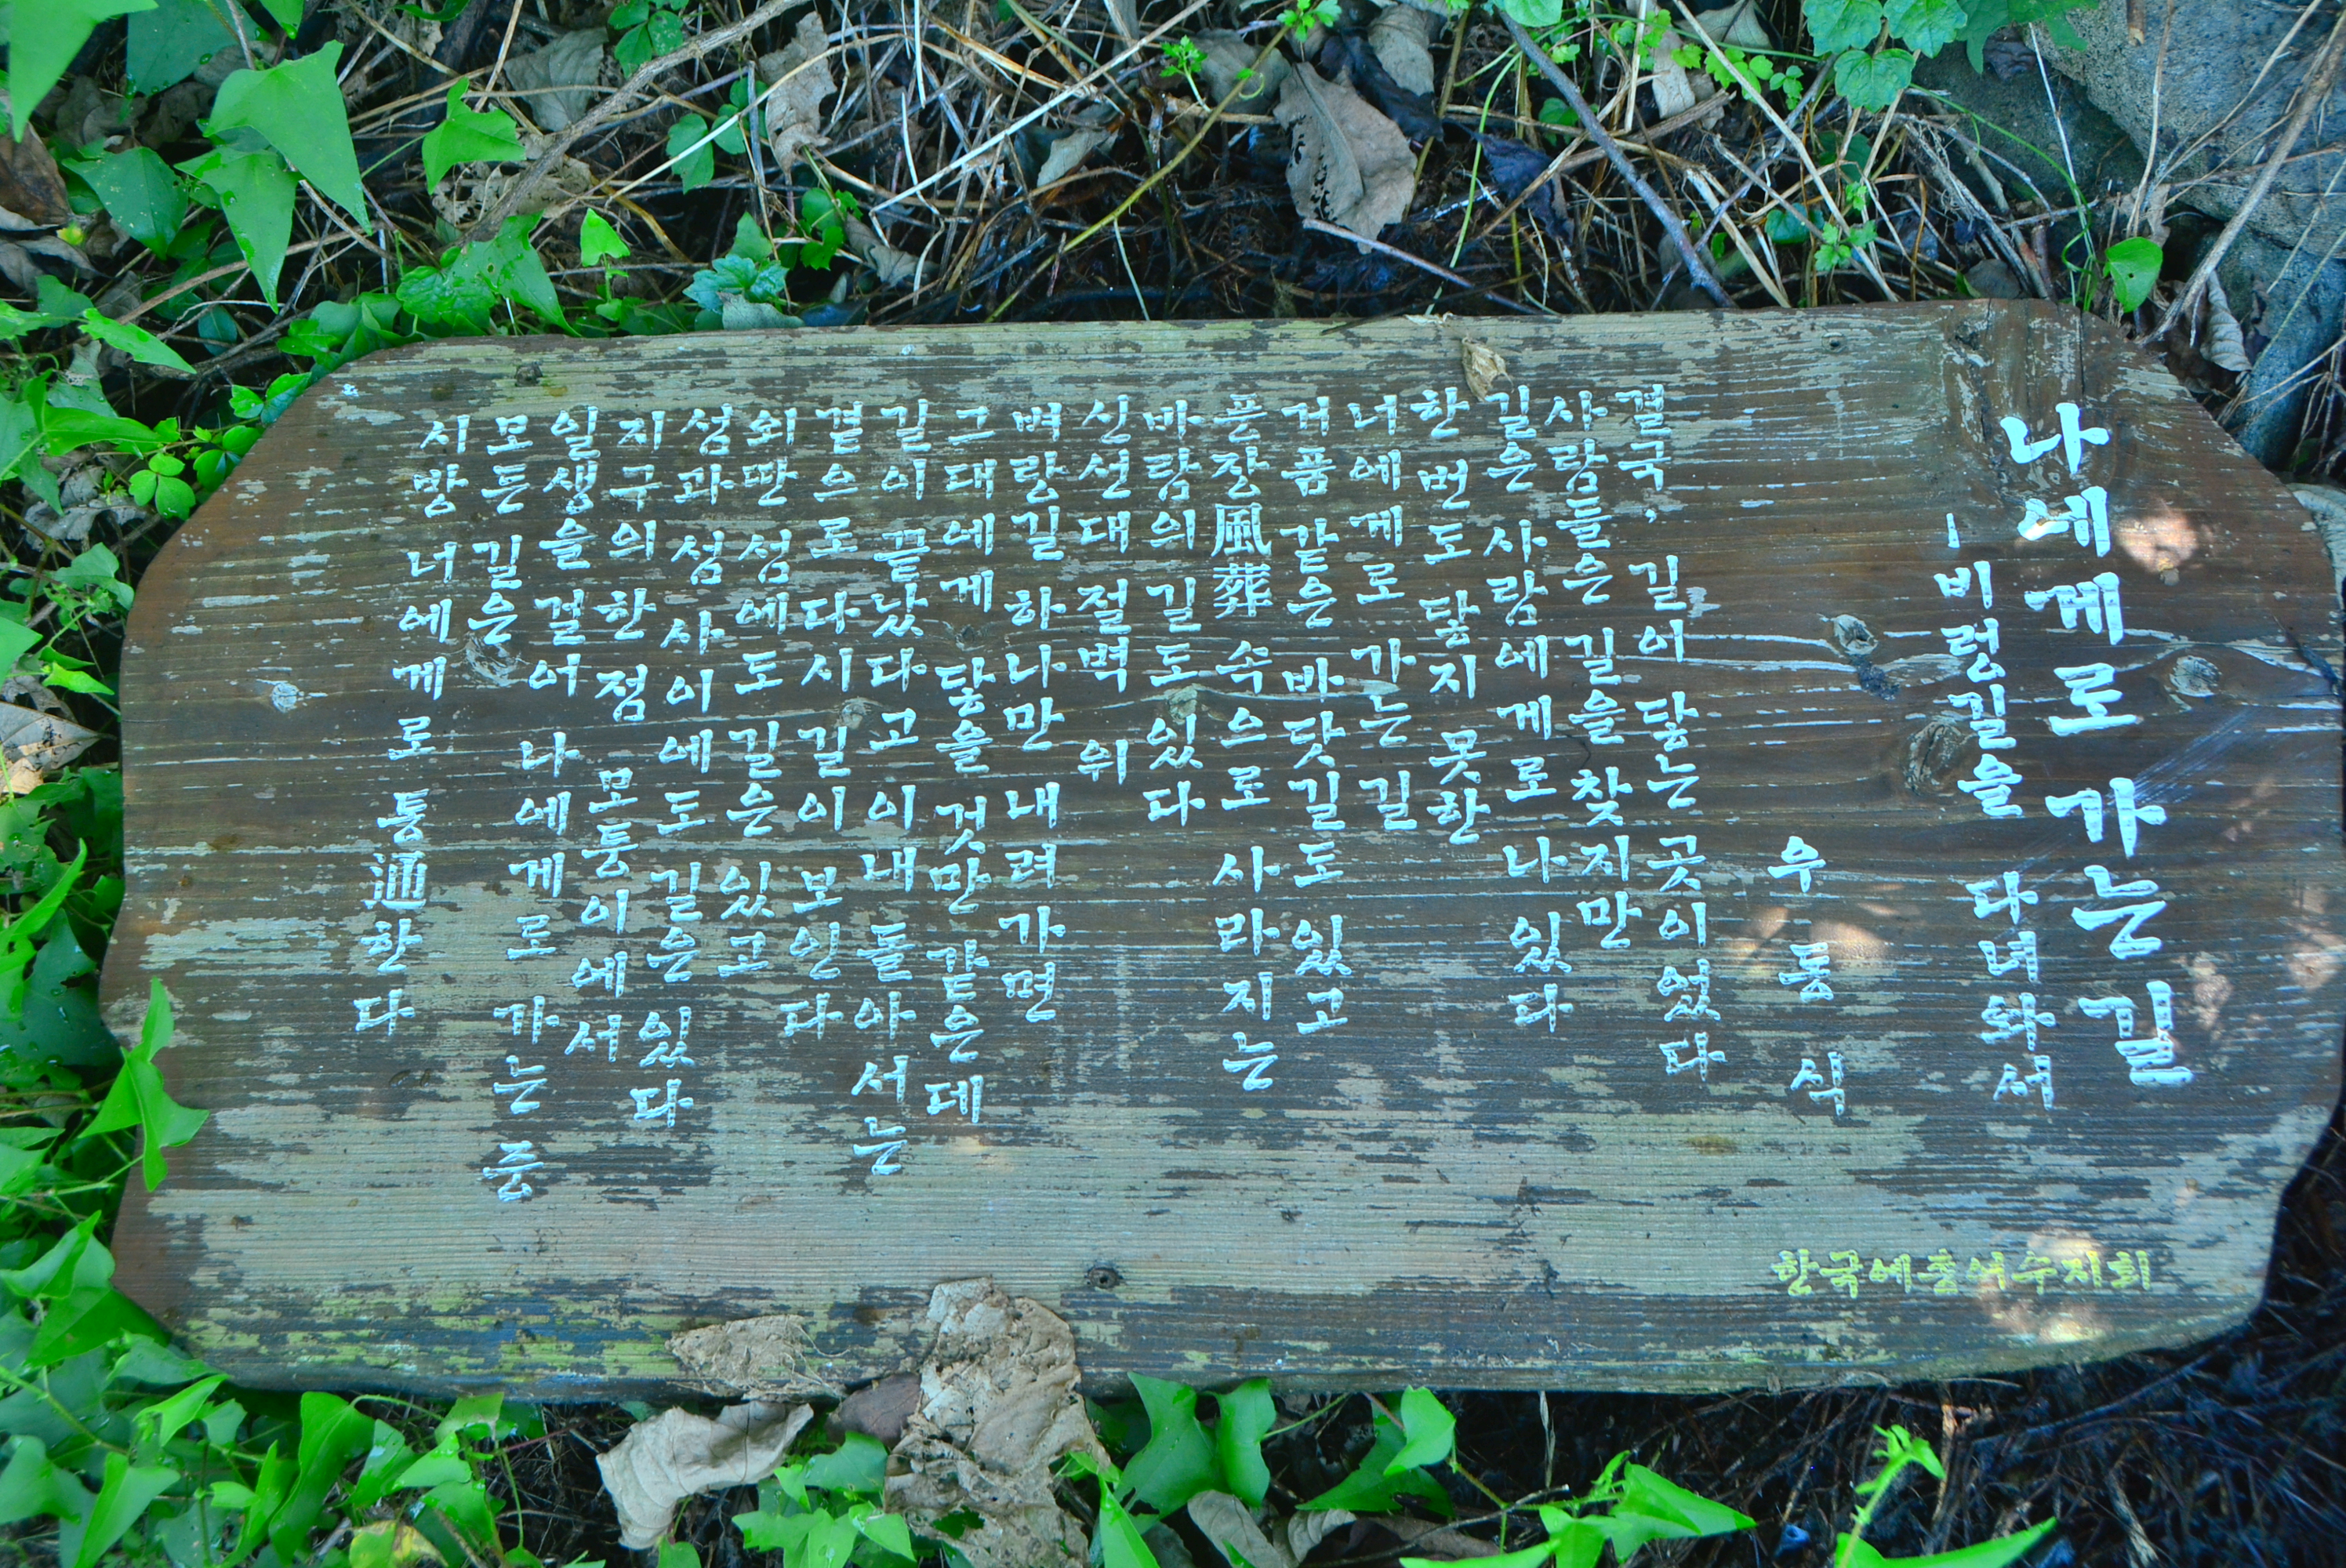 나에게로 가는 길
- 비렁길을 다녀와서
우동식
결국, 길이 닿는 곳이었다
사람들은 길을 찾지만
길은 사람에게로 나 있다
한 번도 닿지 못한
너에게로 가는 길
거품 같은 바닷길도 있고
픈장風葬 속으로 사라지는
바람의 길도 있다
신선대 절벽 위
벼랑길 하나만 내려가면
그대에게 닿을 것만 같은데
길이 끝났다고 이내 돌아서는
곁으로 다시 길이 보인다
외딴 섬에도 길은 있고
섬과 섬 사이에도 길은 있다
지구의 한 점 모퉁이에서
일생을 걸어 나에게로 가는 중
모든 길은
시방 너에게로 통通한다
한국예총여수지회